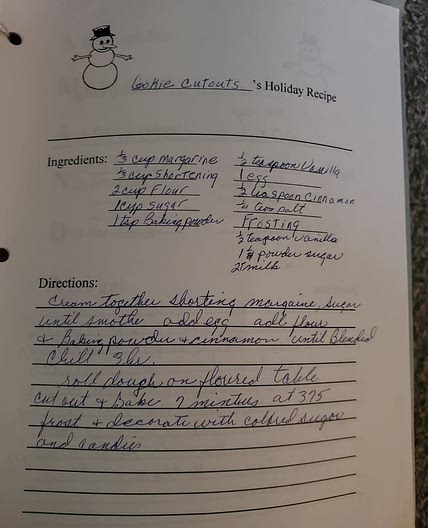 Cookie Cutouts 's Holiday Recipe
Ingredients:
1/3 cup margarine
1/3 cup shortening
2 cup Flour
1 cup sugar
1 tsp Baking powder
1/2 teaspoon Vanilla
1 egg
1/2 teaspoon Cinnamon
salt
Frosting
1/2 teaspoon vanilla
powder sugar
milk
Directions:
Cream together shorting margaine, sugar
until smothe add egg add flour
& Baking powder & cinnamon until Blended
Chill 3hr.
roll dough on floured table
cut out & Bake 7 mintues at 375
frost & decorate with colored sugar
and candies